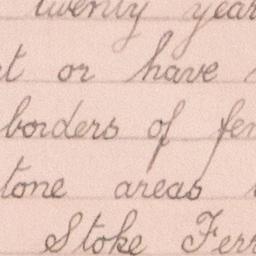 twenty year
t or have
borders of fen
tone areas
Stoke Ferr